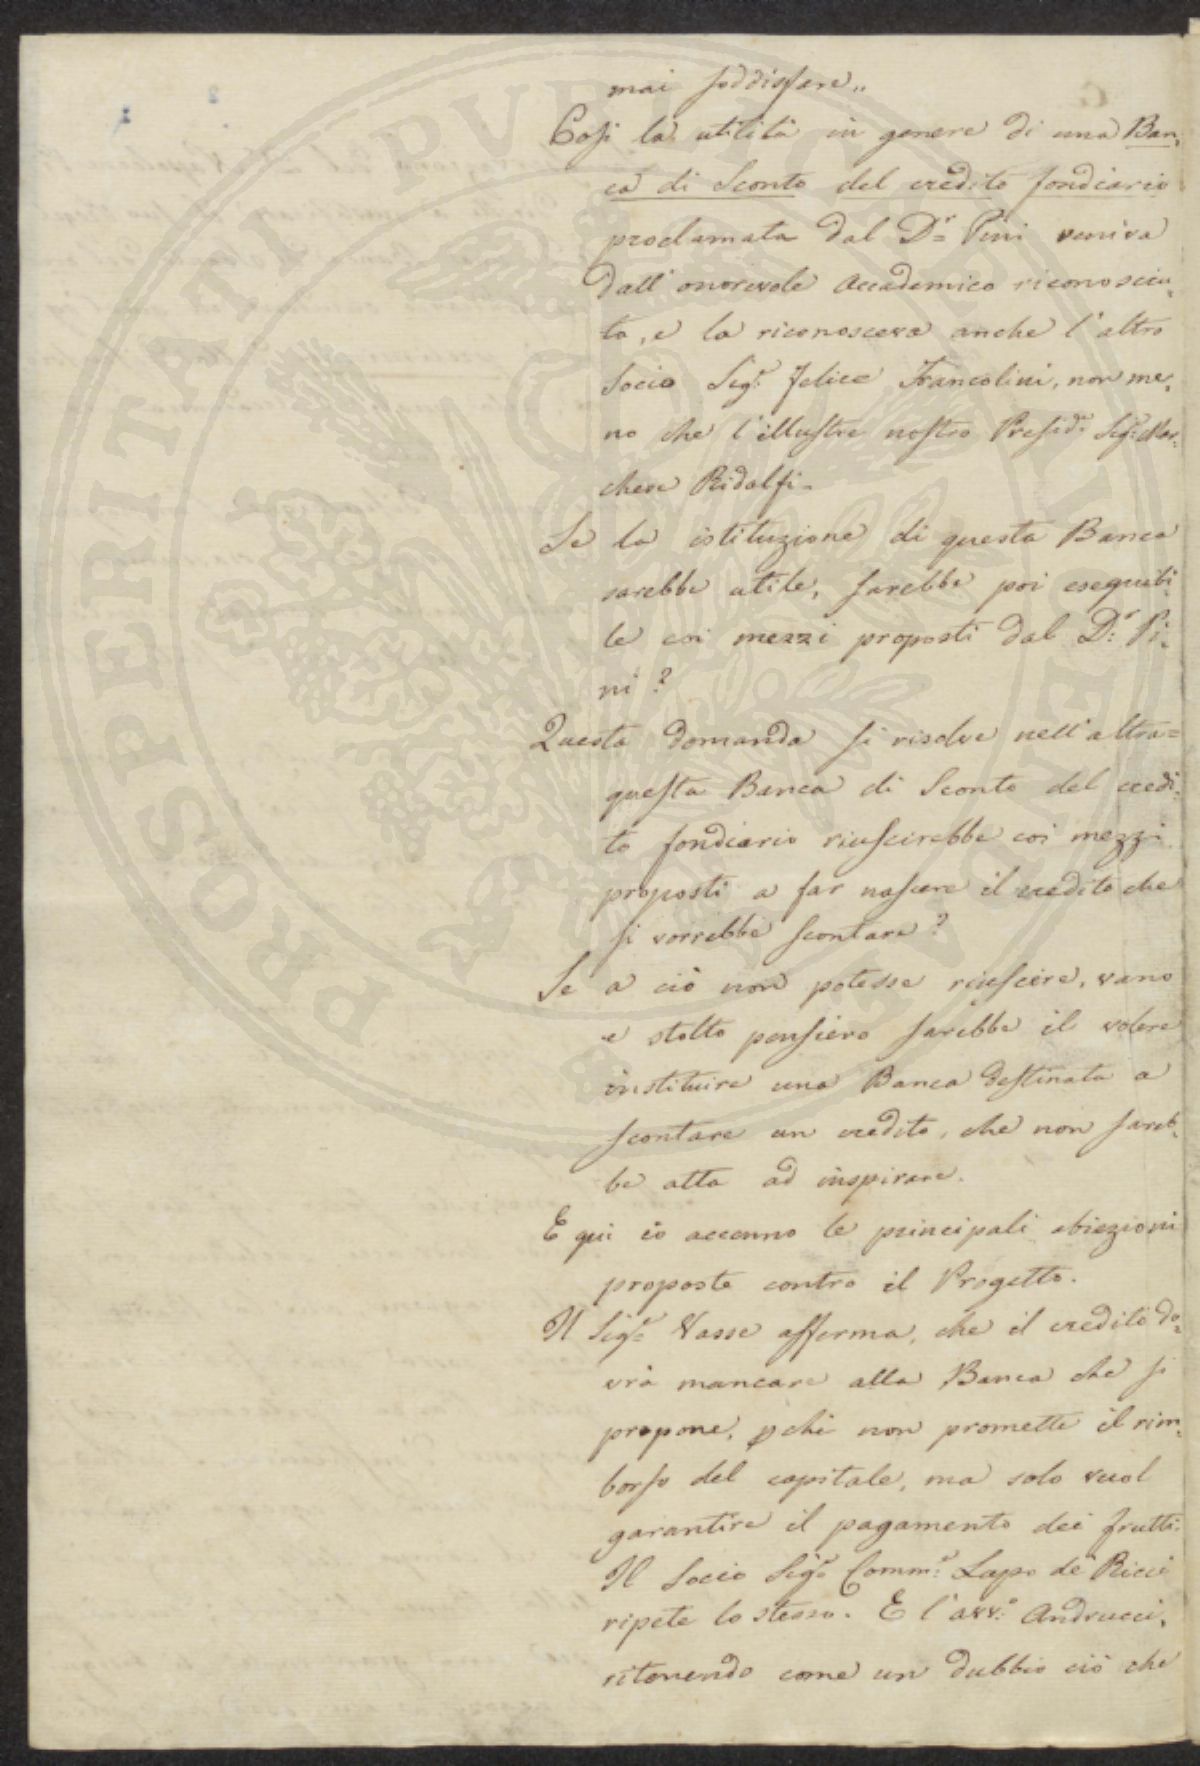 mai soddisfare„
Così la utilità in genere di una Ban„
ca di Sconto del credito fondiario
proclamata dal D.r Pini veniva
dall'onorevole Accademico riconosciu„
ta, e la riconosceva anche l'altro
Socio Sig.r Felice Francolini, non me„
no che l'illustre nostro Presid.e Sig.r Mar„
chese Ridolfi.
Se la istituzione di questa Banca
sarebbe utile, sarebbe poi eseguibi„
le coi mezzi proposti dal D.r Pi„
ni?
Questa domanda si risolve nell'altra =
questa Banca di Sconto del credi„
to fondiario riuscirebbe coi mezzi
proposti a far nascere il credito che
si vorrebbe scontare?
Se a ciò non potesse riuscire, vano
e stolto pensiero sarebbe il volere
instituire una Banca destinata a
scontare un credito, che non sareb„
be atta ad inspirare.
E qui io accenno le principali obiezioni
proposte contro il Progetto.
Il Sig.r Vasse afferma, che il credito do„
vrà mancare alla Banca che si
propone, pchè non promette il rim„
borso del capitale, ma solo vuol
garantire il pagamento dei frutti.
Il Socio Sig.r Comm.r Lapo de' Ricci
ripete lo stesso. E l'avv.o Andreucci,
ritenendo come un dubbio ciò che
PROSPERITATI PVBLICAE AVGENDAE